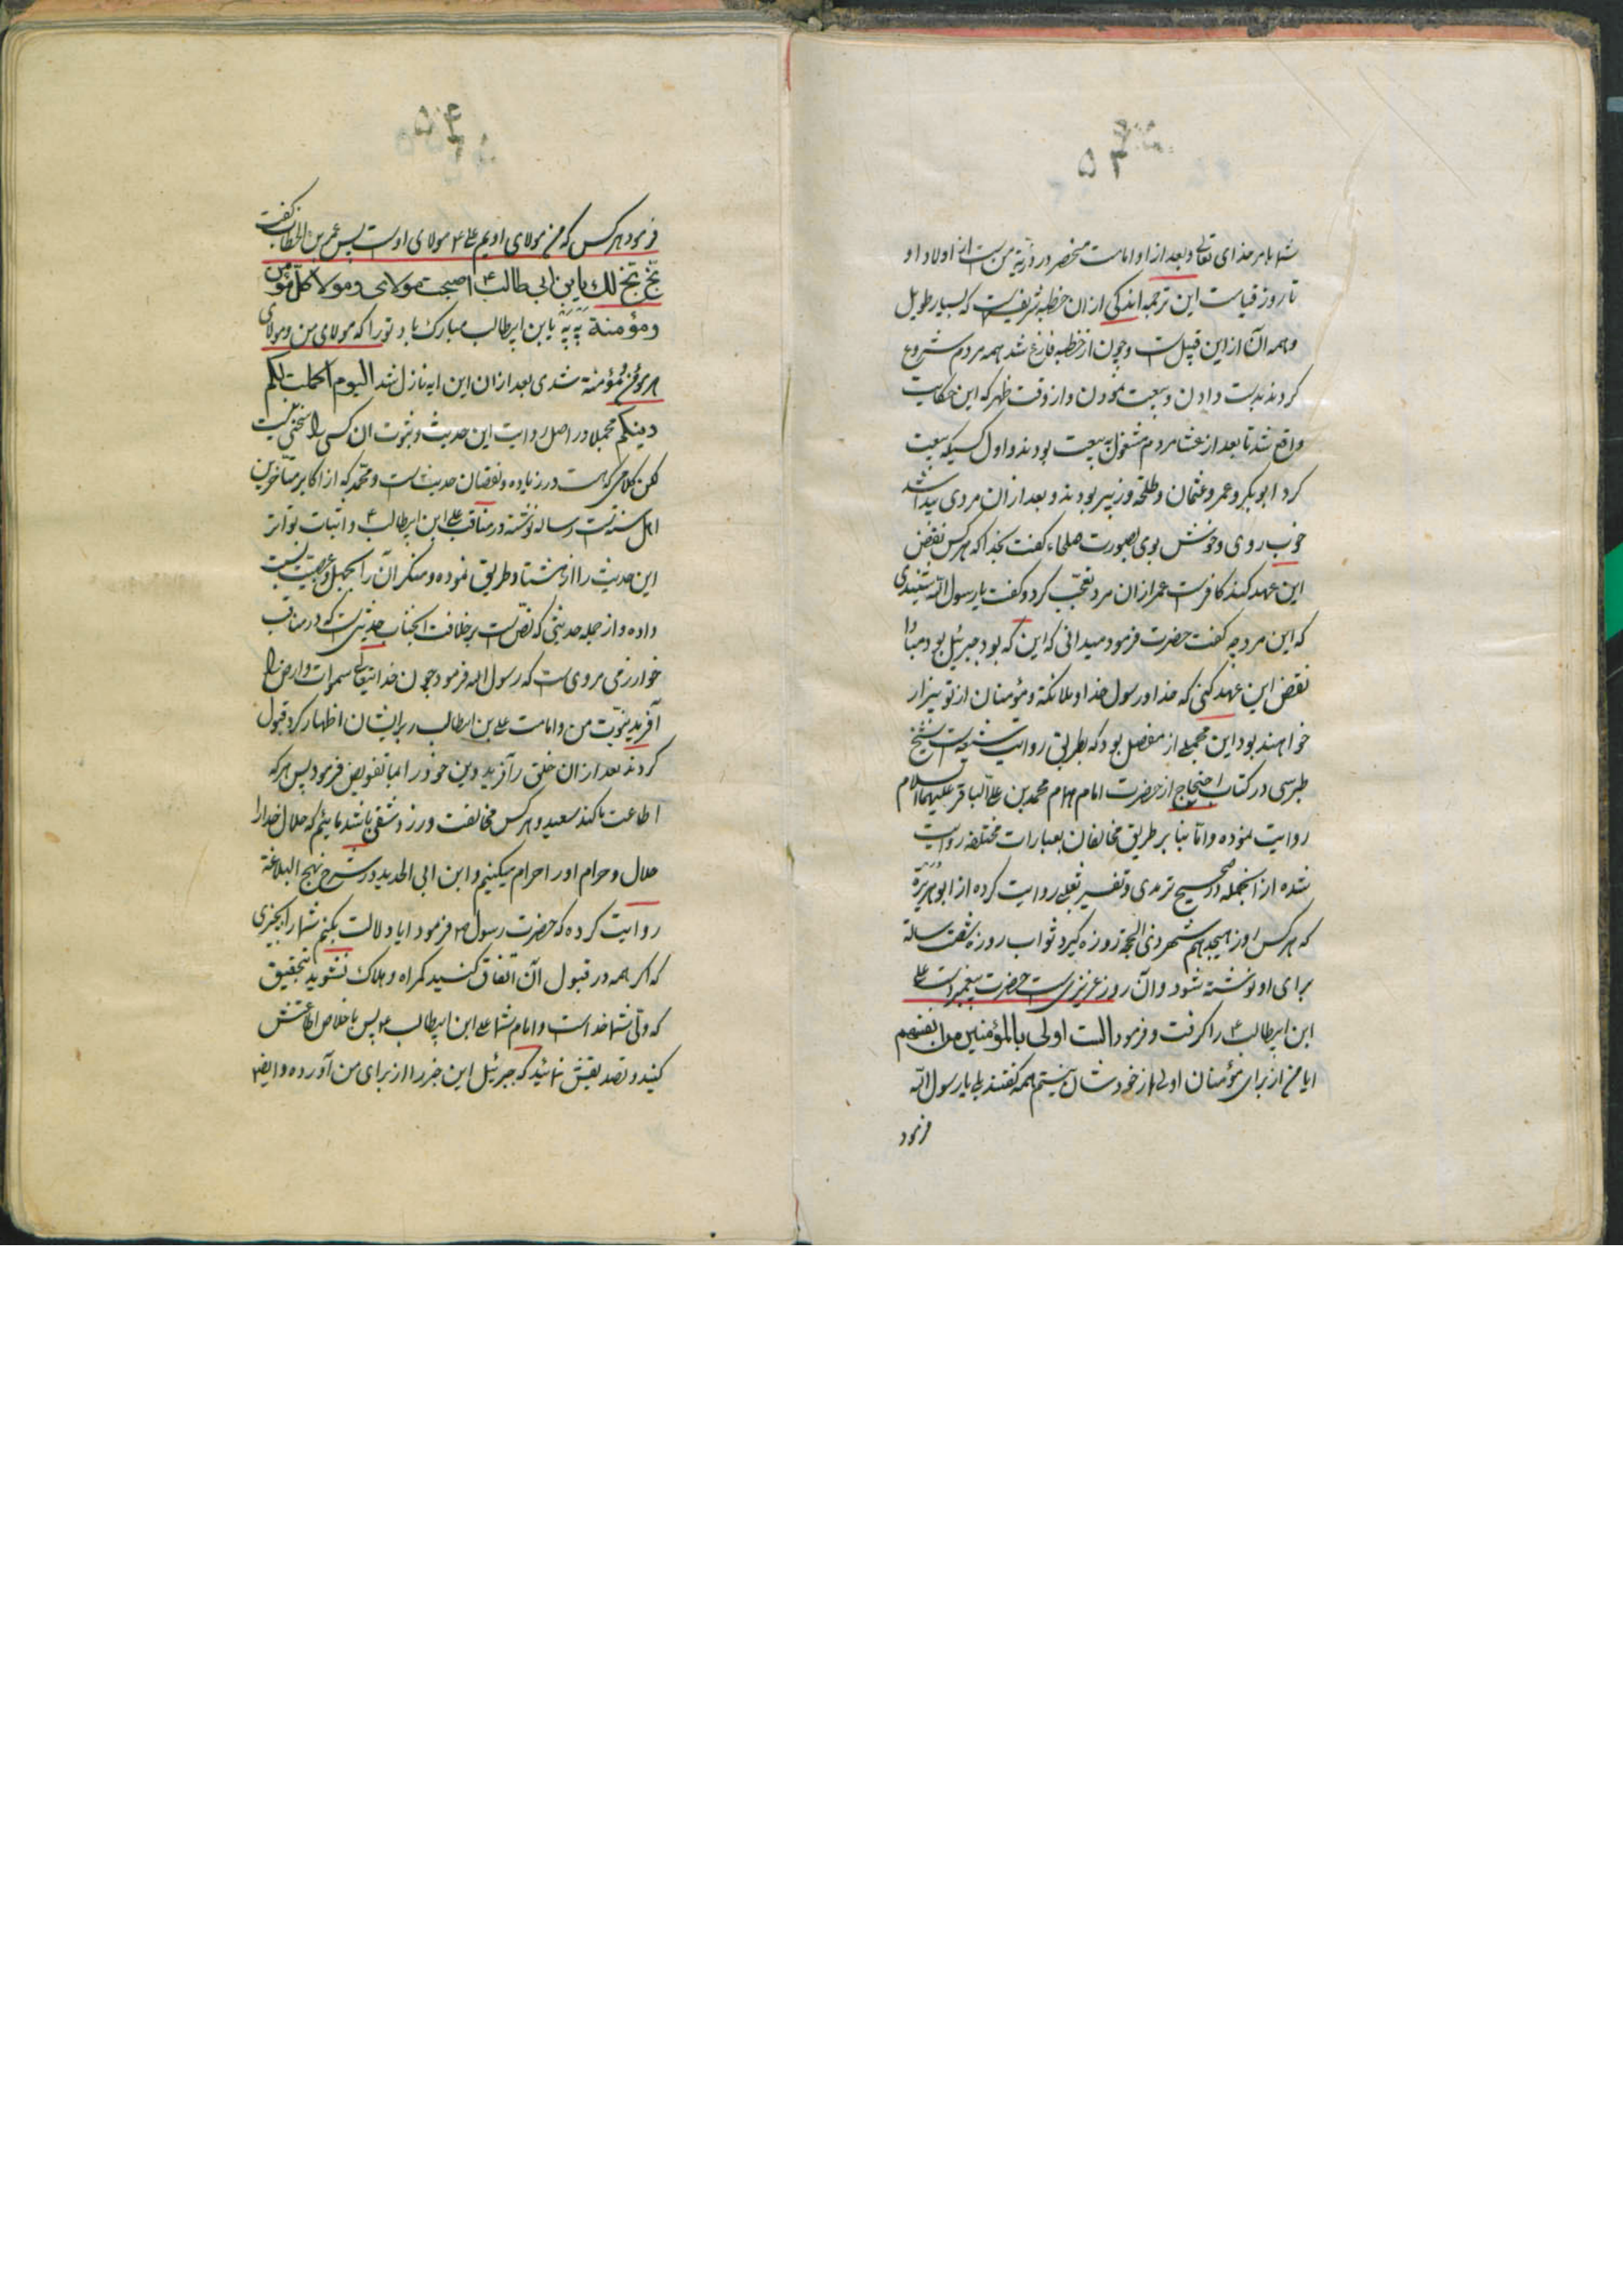 ۴۵
شما بامر خدای تعالی و بعد از او امامت منحصر در ذریه من است از اولاد او
تا روز قیامت این ترجمه اندکی از ان خطبه شریفست که بسیار طویل
و همه آن از این قبیل است و چون از خطبه فارغ شد همه مردم شروع
کردند بدست دادن و بیعت نمودن و از وقت ظهر که این حکایت
واقع شد تا بعد از عشا مردم مشغول به بیعت بودند و اول کسیکه بیعت
کرد ابوبکر و عمر و عثمان و طلحه و زبیر بودند و بعد از ان مردی پیدا شد
خوب روی و خوش بوی بصورت صلحاء کفت بخدا که هر کس نقض
این عهد کند کافر است عمر از ان مرد تعجب کرد و کفت یا رسول الله شنیدی
که این مرد چه کفت حضرت فرمود میدانی که این که بود جبرئیل بود مبادا
نقض این عهد کنی که خدا و رسول خدا و ملائکه و مؤمنان از تو بیزار
خواهند بود این مجملی از مفصل بود که بطریق روایت شیعه است شیخ
طبرسی در کتاب احتجاج از حضرت امام همام محمد بن علی الباقر علیهما السلام
روایت نموده و اما بنا بر طریق مخالفان بعبارات مختلفه روایت
شده از انجمله در صحیح ترمذی و تفسیر ثعلبی روایت کرده از ابوهریره
که هر کس روز هیجدهم شهر ذی الحجه روزه کیرد ثواب روزه شصت ساله
برای او نوشته شود و آن روز عزیزی است حضرت پیغمبر دست علی
ابن ابیطالب ع را کرفت و فرمود الست اولی بالمؤمنین من انفسهم
ایا من از برای مؤمنان اولی از خودشان نیستم همه کفتند بلی یا رسول الله
فرمود
فرمود هر کس که من مولای اویم علی ع مولای اوست پس عمر بن الخطاب کفت
بخ بخ لک یا بن ابی طالب ع اصبحت مولای و مولا کل مؤمن
و مؤمنة په په یا بن ابیطالب مبارک باد تو را که مولای من و مولای
هر مؤمن و مؤمنة شدی بعد از ان این ایه نازل شد الیوم اکملت لکم
دینکم مجملا در اصل روایت این حدیث و ثبوت ان کسی را سخنی نیست
لکن کلامی که هست در زیاده و نقصان حدیث است و محمد که از اکابر متأخرین
اهل سنت است رساله نوشته در مناقب علی ابن ابیطالب ع و اثبات تواتر
این حدیث را از هشتاد طریق نموده و منکر آن را بجهل و عصبیت نسبت
داده و از جمله حدیثی که نص است بر خلافت انجناب حدیثی است که در مناقب
خوارزمی مروی است که رسول الله فرمود چون خدایتعالی سموات و ارض را
آفرید نبوت من و امامت علی بن ابیطالب را بر ایشان اظهار کرد قبول
کردند بعد از ان خلق را آفرید و دین خود را بما تفویض فرمود پس هر که
اطاعت ما کند سعید و هر کس مخالفت ورزد شقی باشد مائیم که حلال خدا را
حلال و حرام او را حرام میکنیم و ابن ابی الحدید در شرح نهج البلاغة
روایت کرده که حضرت رسول ص فرمود ایا دلالت بکنم شما را بچیزی
که اکر همه در قبول آن اتفاق کنید کمراه و هلاک نشوید بتحقیق
که ولی شما خداست و امام شما علی ابن ابیطالب ع پس باخلاص اطاعتش
کنید و تصدیقش نمائید که جبرئیل این خبر را از برای من آورده و ایضا